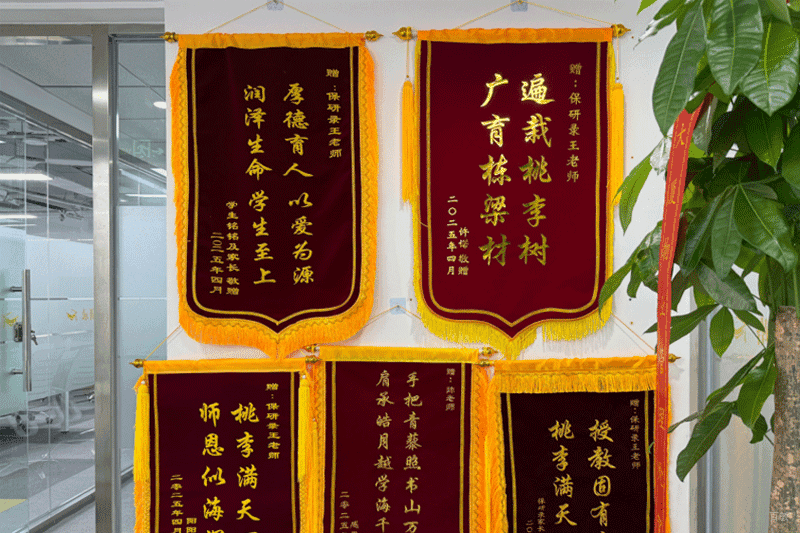 赠：保研录王老师
厚德育人 以爱为源
润泽生命 学生至上
学生铭铭及家长 敬赠
二〇二五年四月
赠：保研录王老师
遍栽桃李树
广育栋梁材
许诺 敬赠
二〇二五年四月
赠：保研录王老师
桃李满天
师恩似海
二零二五年四月
老师
手把青藜照书山万
肩承皓月越学海千
二零二五
赠：保研录王老师
授教固有
桃李满天